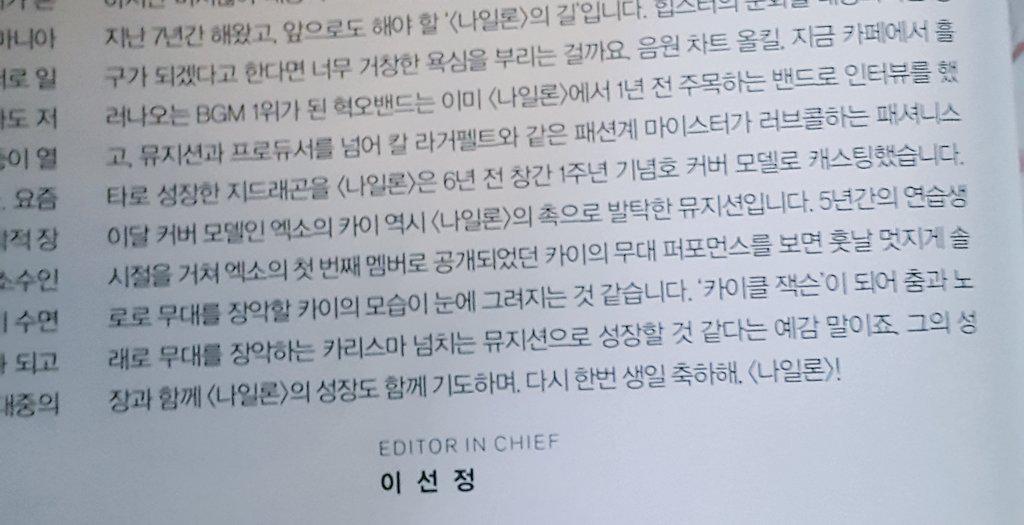 마니아
로 일
도 저
이 열
요즘
적 장
소수인
수면
되고
대중의
지난 7년간 해왔고, 앞으로도 해야 할 '〈나일론〉의 길'입니다. 힙스터의
구가 되겠다고 한다면 너무 거창한 욕심을 부리는 걸까요. 음원 차트 올킬. 지금 카페에서 흘
러나오는 BGM 1위가 된 혁오밴드는 이미 〈나일론〉에서 1년 전 주목하는 밴드로 인터뷰를 했
고, 뮤지션과 프로듀서를 넘어 칼 라거펠트와 같은 패션계 마이스터가 러브콜하는 패셔니스
타로 성장한 지드래곤을 〈나일론〉은 6년 전 창간 1주년 기념호 커버 모델로 캐스팅했습니다.
이달 커버 모델인 엑소의 카이 역시 〈나일론〉의 촉으로 발탁한 뮤지션입니다. 5년간의 연습생
시절을 거쳐 엑소의 첫 번째 멤버로 공개되었던 카이의 무대 퍼포먼스를 보면 훗날 멋지게 솔
로로 무대를 장악할 카이의 모습이 눈에 그려지는 것 같습니다. '카이클 잭슨'이 되어 춤과 노
래로 무대를 장악하는 카리스마 넘치는 뮤지션으로 성장할 것 같다는 예감 말이죠. 그의 성
장과 함께 〈나일론〉의 성장도 함께 기도하며. 다시 한번 생일 축하해, 〈나일론〉!
EDITOR IN CHIEF
이 선 정